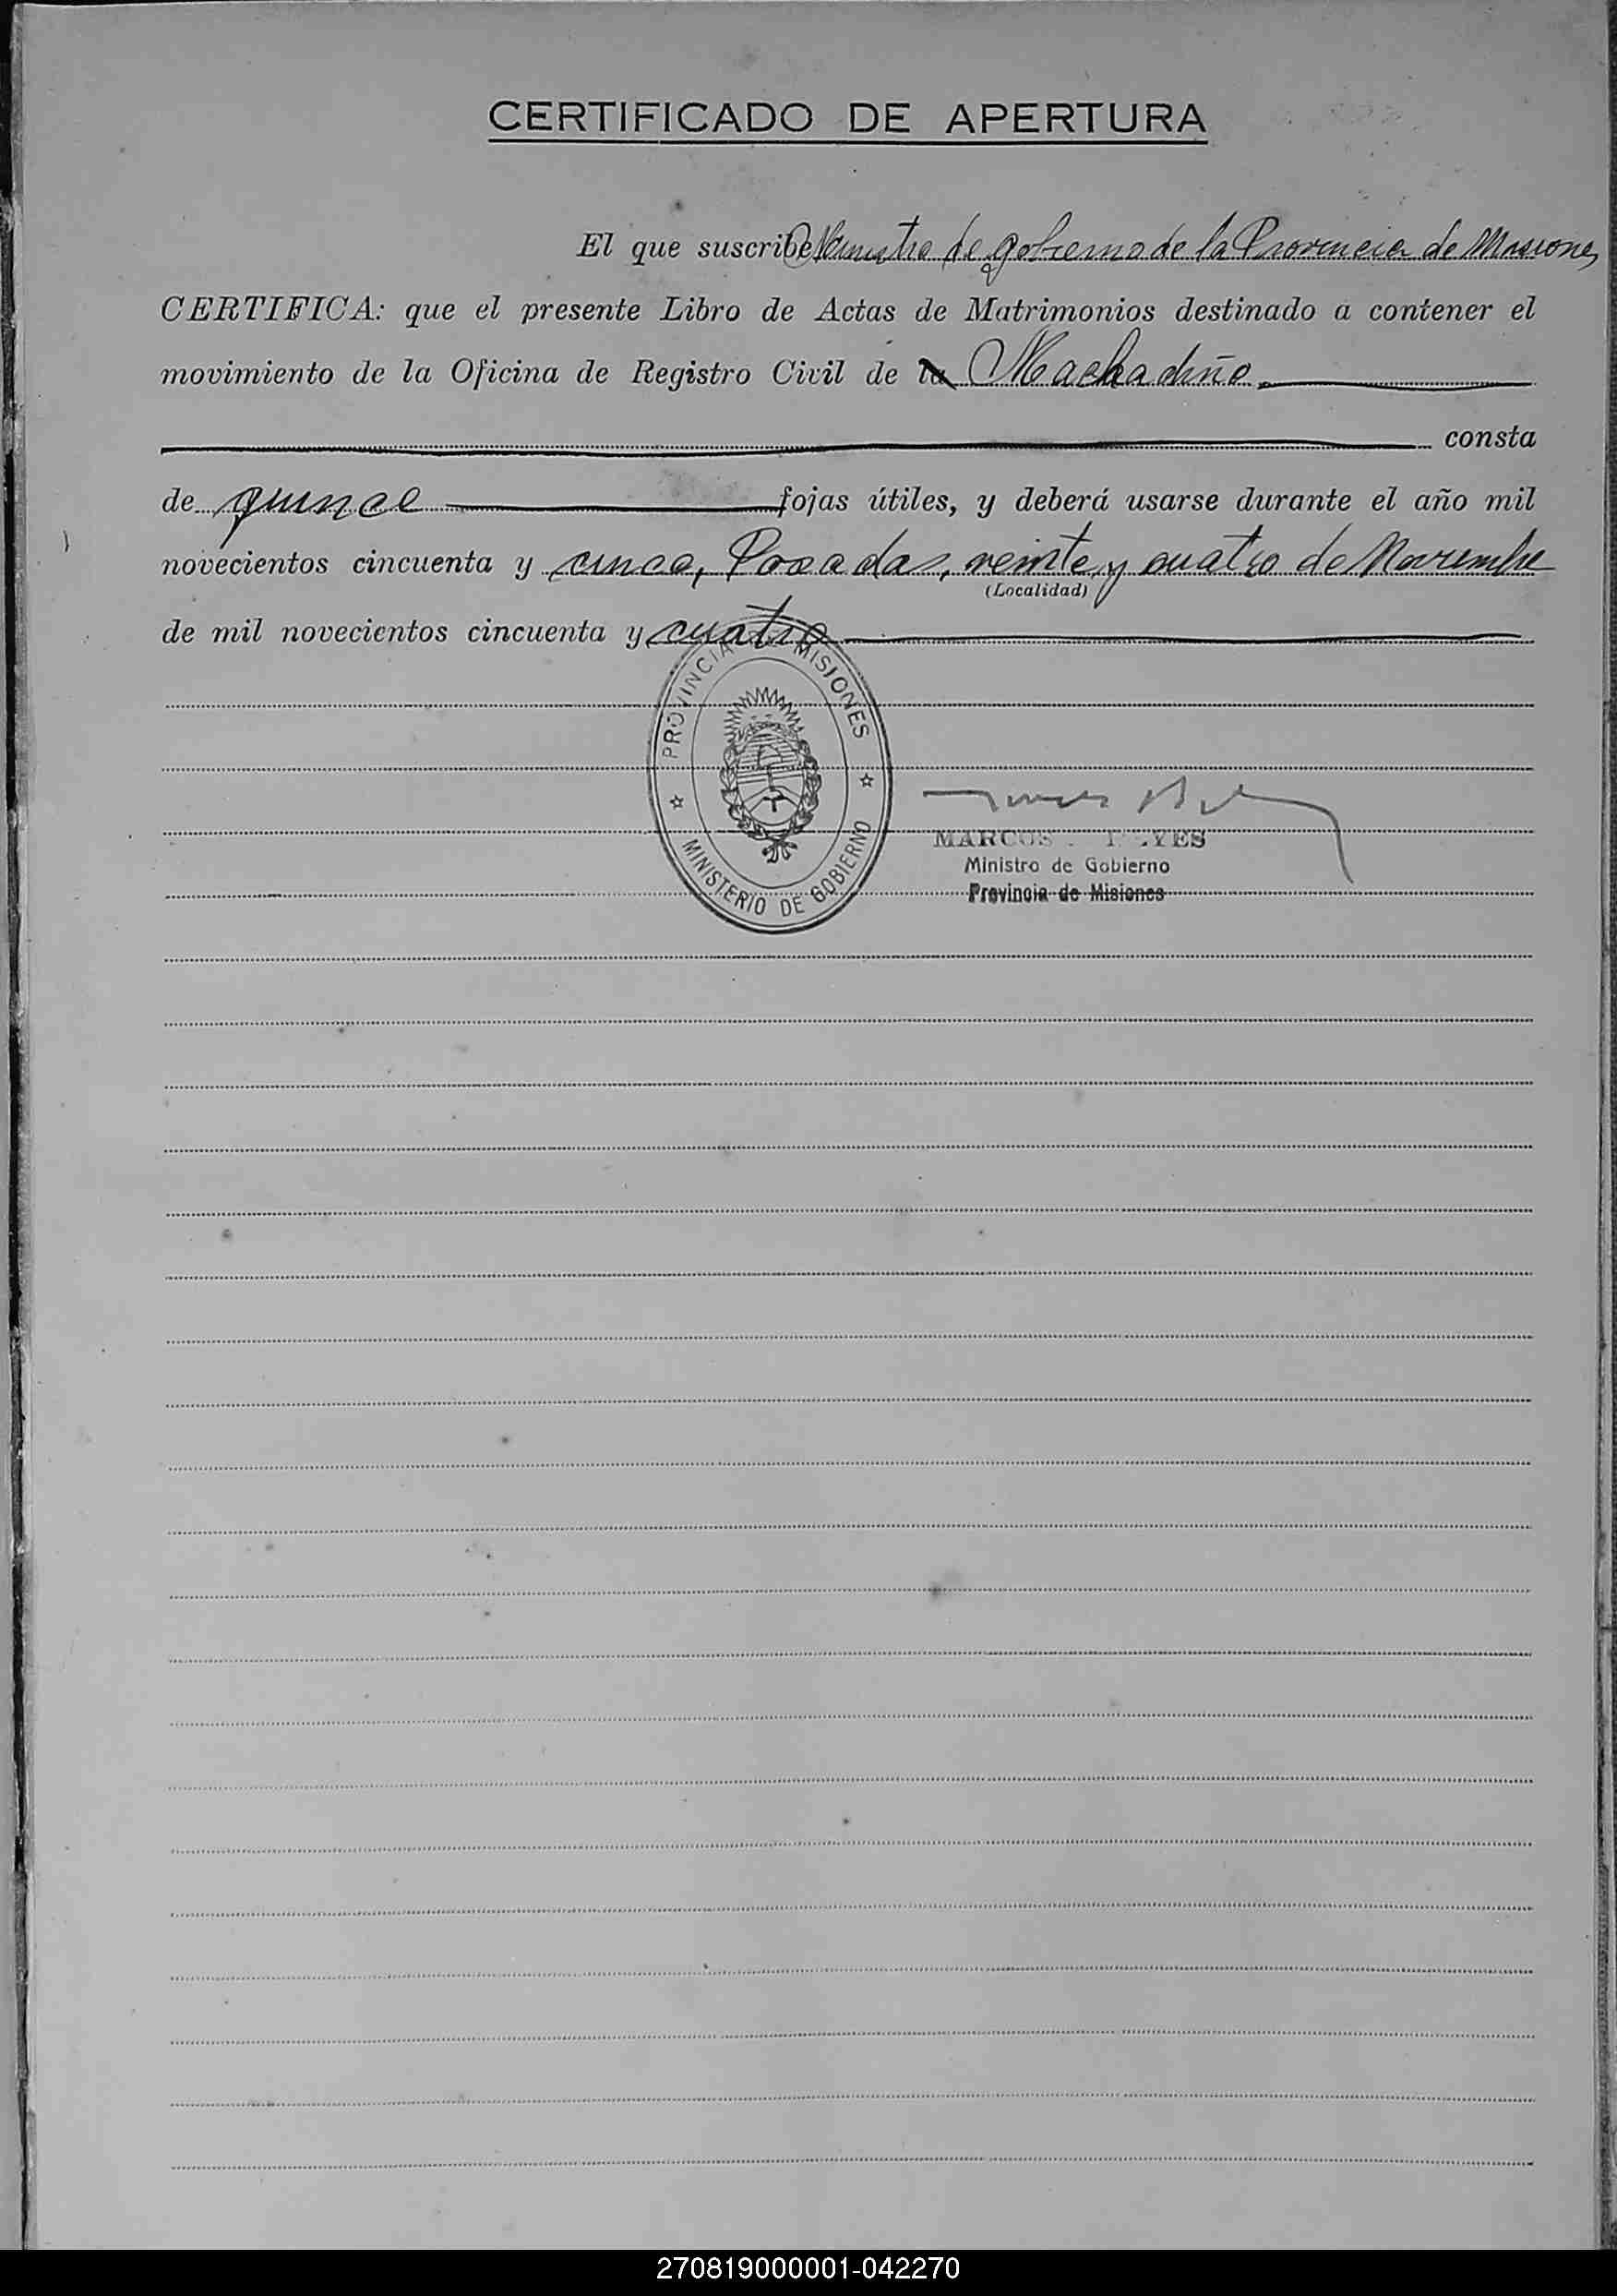 CERTIFICADO DE APERTURA
El que suscribe Ministro de gobierno de la Provincia de Misiones
CERTIFICA: que el presente Libro de Actas de Matrimonios destinado a contener el
movimiento de la Oficina de Registro Civil de la Machadiño
consta
de quince fojas útiles, y deberá usarse durante el año mil
novecientos cincuenta y cinco, Posadas, veinte y cuatro de Noviembre
(Localidad)
de mil novecientos cincuenta y cuatro
PROVINCIA MISIONES
MINISTERIO DE GOBIERNO
MARCOS
Ministro de Gobierno
Provincia de Misiones
270819000001-042270